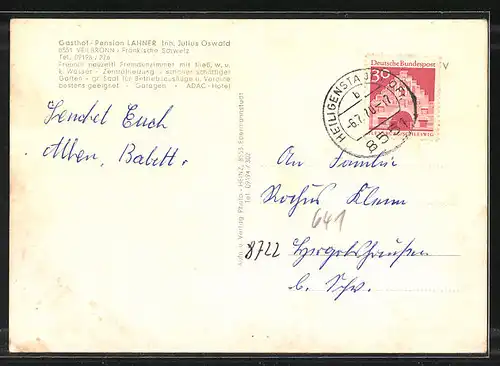 Gasthof - Pension LAHNER Inh. Julius Oswald
8551 VEILBRONN - Fränkische Schweiz
Tel. 09198 / 226
Freundl. neuzeitl. Fremdenzimmer mit fließ. w. u.
k. Wasser - Zentralheizung - schöner schattiger
Garten - gr. Saal für Betriebsausflüge u. Vereine
bestens geeignet - Garagen - ADAC-Hotel
Sendet Euch
Babett.
Aufn. u. Verlag Photo - HEINZ, 8553 Ebermannstadt
Tel. 09194 / 302
Deutsche Bundespost
30
HEILIGENSTADT
b
-6.7.70-17
8551
An Familie
Rochus Klemm
641
8722 Hergolshausen
b. Schw.